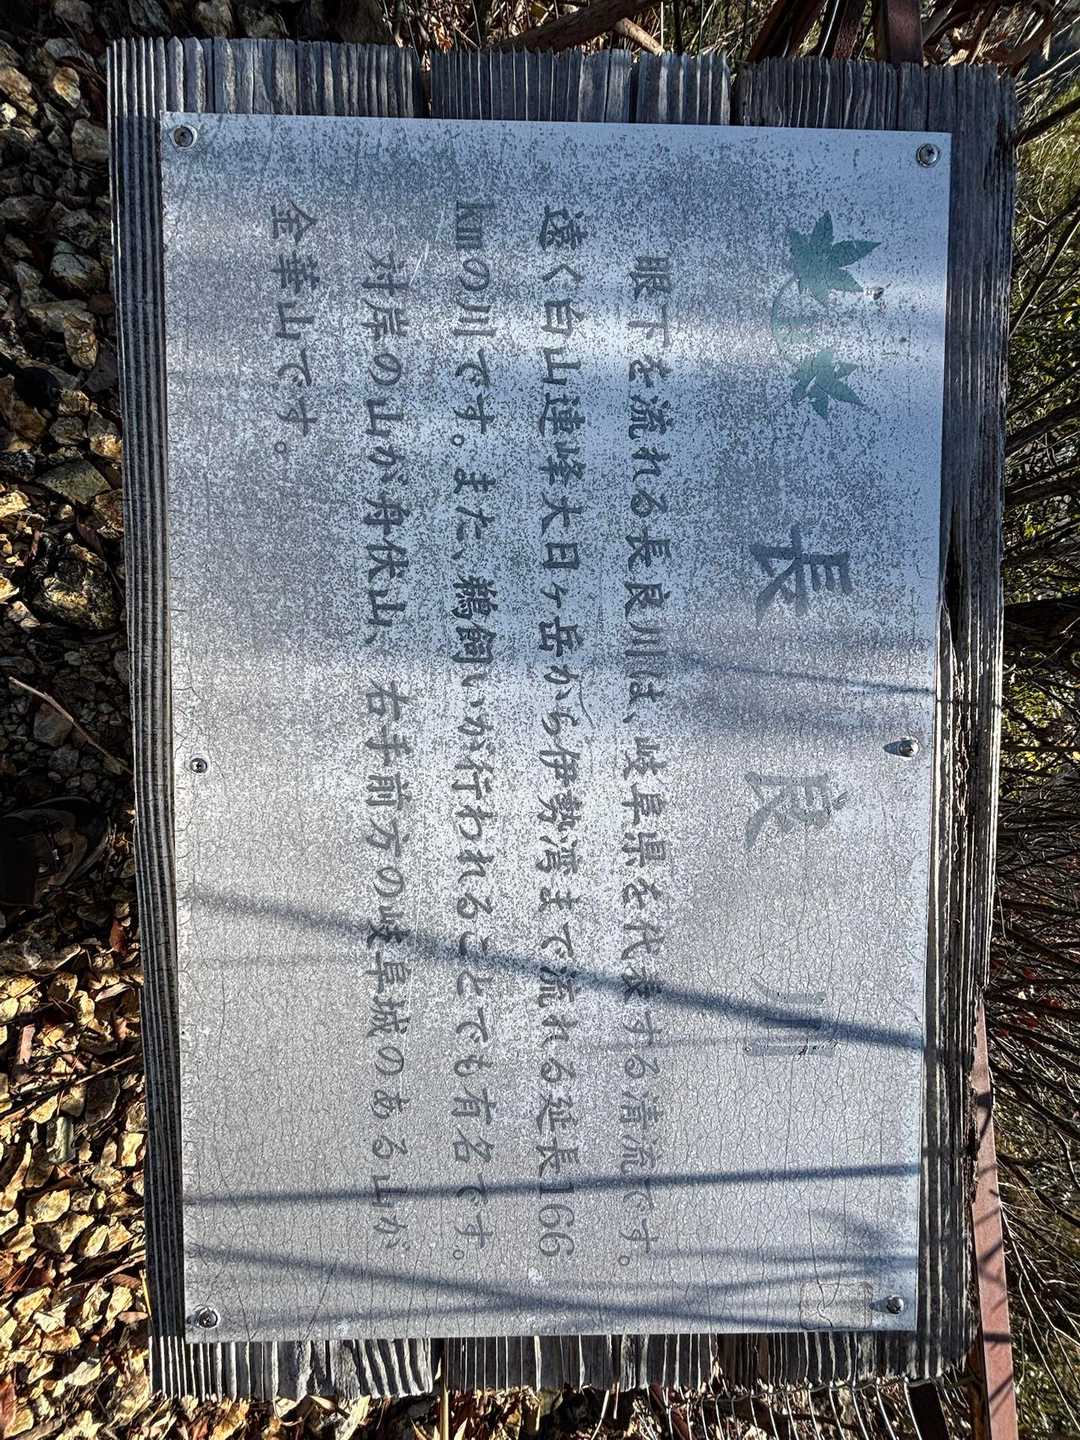 長良川
眼下を流れる長良川は、岐阜県を代表する清流です。
遠く白山連峰大日ヶ岳から伊勢湾まで流れる延長166
kmの川です。また、鵜飼いが行われることでも有名です。
対岸の山が舟伏山、右手前方の岐阜城のある山が
金華山です。